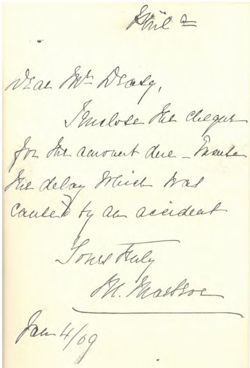 Dear Mr Deasy,
I enclose the cheque
for the amount due –
the delay which was
caused by an accident
Yours truly
Jan 4/09